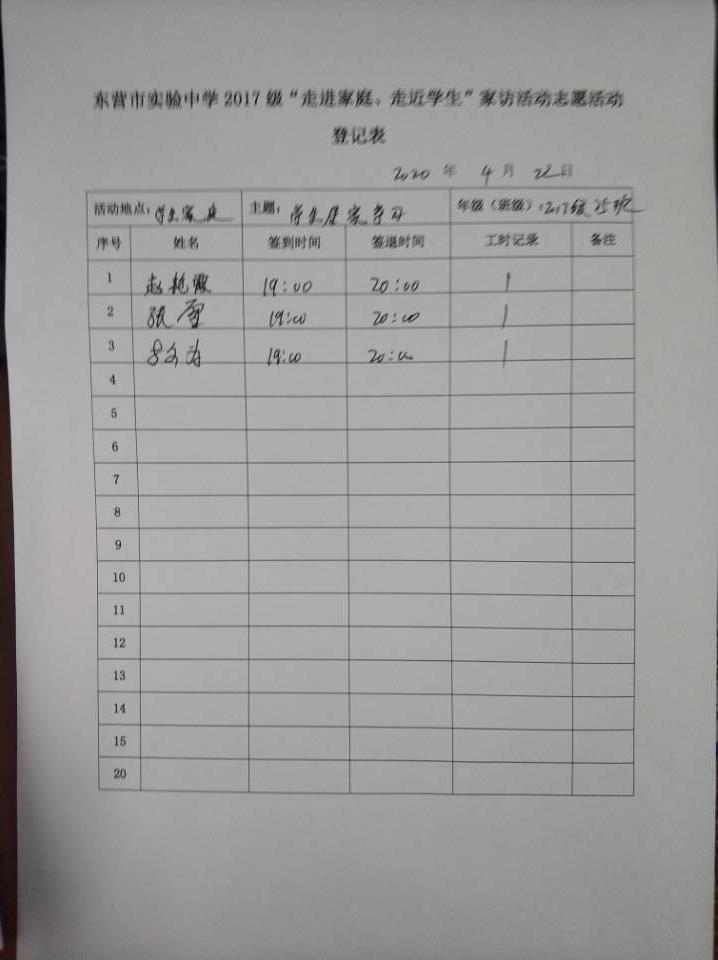 东营市实验中学2017级“走进家庭，走近学生”家访活动志愿活动
登记表
2020 年 4 月 22 日
活动地点：学生家庭 主题：学生居家学习 年级（班级）：2017级25班
序号 姓名 签到时间 签退时间 工时记录 备注
1 赵艳霞 19:00 20:00 1
2 张 19:00 20:00 1
3 19:00 20:00 1
4
5
6
7
8
9
10
11
12
13
14
15
20